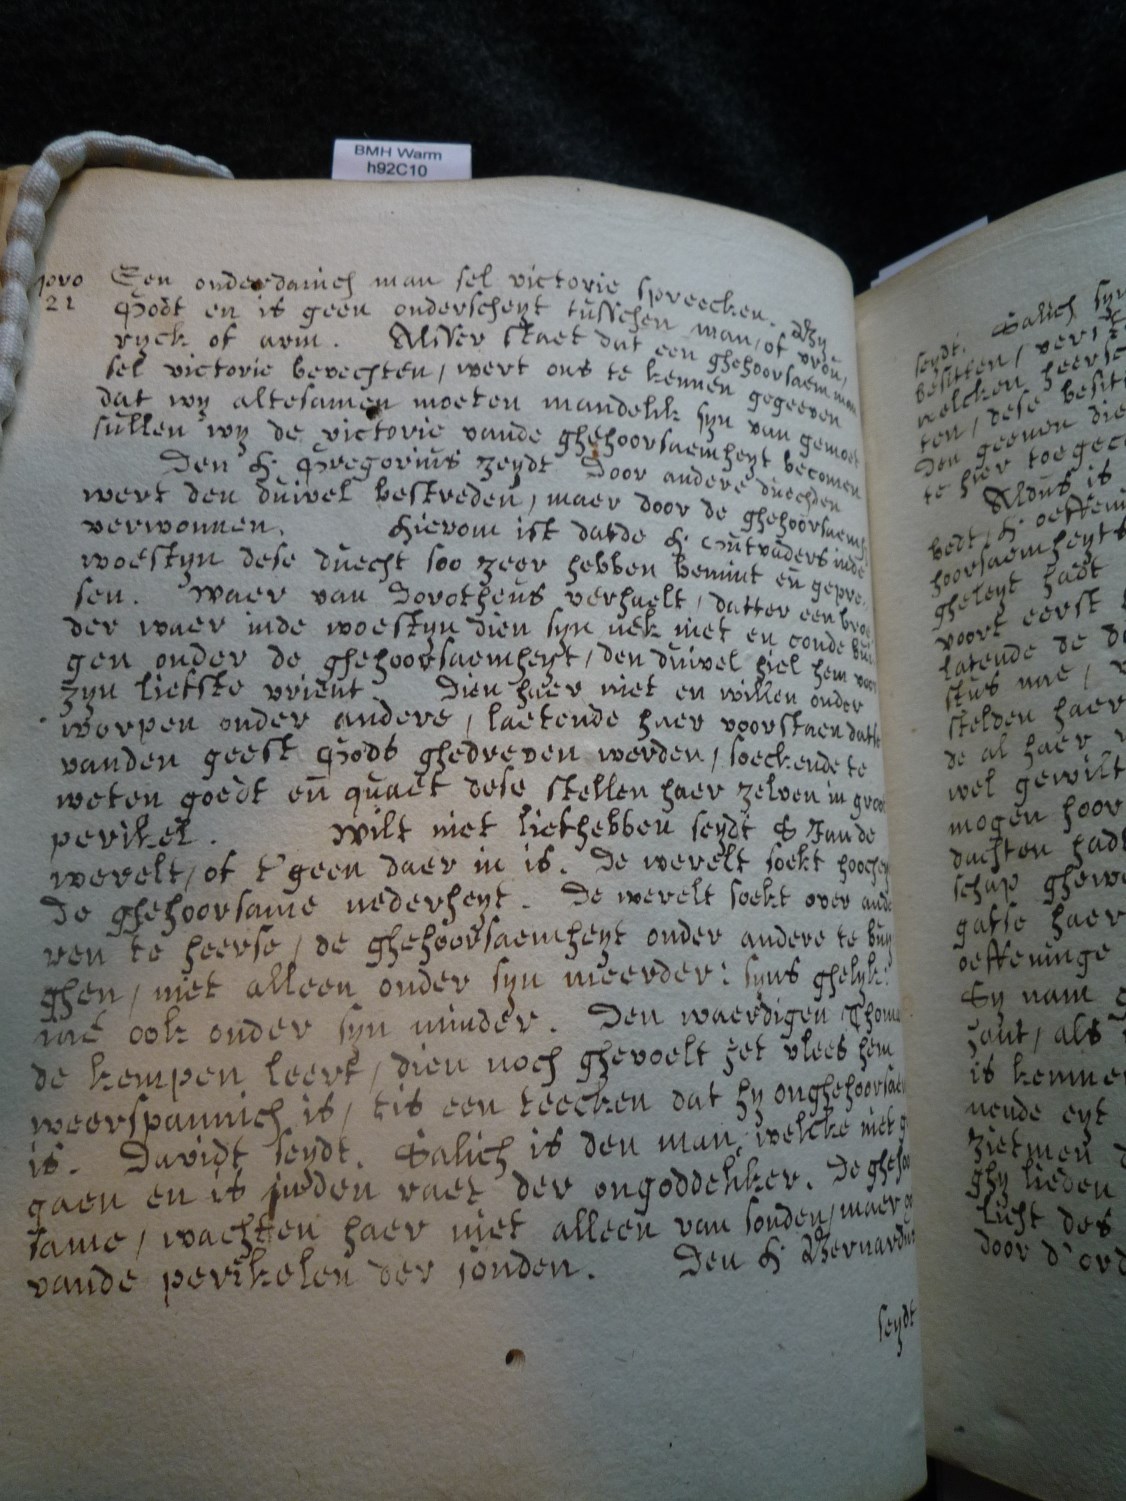 BMH Warm
h92C10
prov
21
Een onderdanich man sel victorie spreecken. By
Godt en is geen onderscheyt tusschen man, of vrou,
ryck of arm. Alsser staet dat een ghehoorsaem man
sel victorie bevechten, wert ons te kennen gegeeven
dat wy altesamen moeten mandelik syn van gemoet
sullen wy de victorie vande ghehoorsaemheyt becomen
Den H Gregorius zeydt Door andere duechden
wert den duivel bestreden, maer door de ghehoorsaemh
verwonnen. Hierom ist datde H outvaders inde
woestyn dese duecht soo zeer hebben bemint en gepre,
sen. Waer van Dorotheus verhaelt, datter een broe
der waer inde woestyn dien syn nek niet en conde bui
gen onder de ghehoorsaemheyt, den duivel hiel hem voor
zyn liefste vrient. Dien haer niet en willen onder
worpen onder andere, laetende haer voorstaen datse
vanden geest Gods ghedreven werden, soeckende te
weten goedt en quaet dese stellen haer zelven in groot
perikel. Wilt niet liefhebben seydt S Jan de
werelt, of t'geen daer in is. De werelt soekt hoochey
De ghehoorsame nederheyt. De werelt soekt over ande
ren te heerse, de ghehoorsaemheyt onder andere te buy
ghen, niet alleen onder syn meerder: syns ghelyke
mae ook onder syn minder. Den waerdigen Thoma
de kempen leert, dien noch ghevoelt het vlees hem
weerspannich is, tis een teecken dat hy onghehoorsae
is. Davidt seydt. Salich is den man, welcke niet g
gaen en is inden raet der ongoddeliker. De ghehoo
same, wachten haer niet alleen van sonden, maer oo
vande perikelen der sonden. Den H Bernardus
seydt
seydt. Salich syn
besitten, veri
welcken heersc
ten, dese besit
Den geenen die
te hier toegec
Aldus is
bedt, H oeffen
hoorsaemheyts
gheleyt hadt
voort eerst
latende de
stus nae,
stelden haer
de al haer
wel gewilt
mogen hoor
dachten hadt
schap ghewe
gatse haer
oeffeninge
Sy nam
hout, als
is kenne
nende eyt
zietmen
ghy lieden
licht des
door d'ord